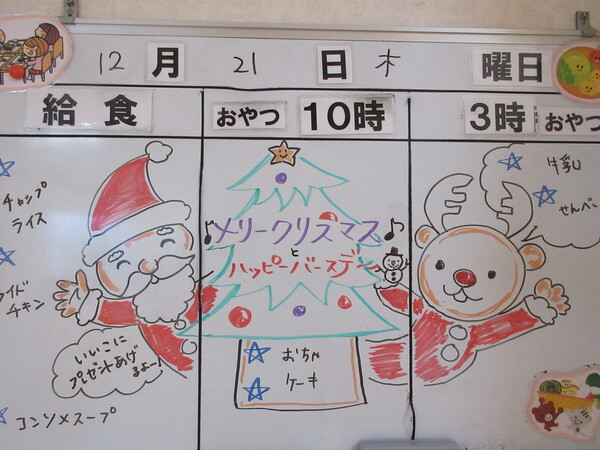 12 月 21 日 木 曜日
給食
おやつ 10時
3時 おやつ
チャンプ
ライス
イドチキン
コンソメスープ
いいこに
プレゼントあげ
るよー!
メリークリスマス
と
ハッピーバースデー
おちゃ
ケーキ
牛乳
せんべい